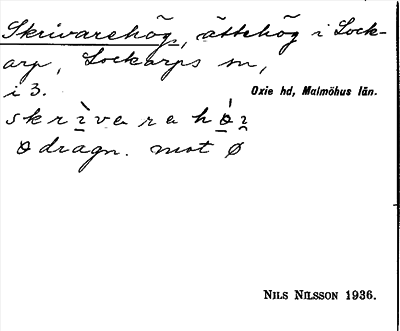 Skrivarehög, ättehög i Lock-
arp, Lockarps sn,
i 3.
Oxie hd, Malmöhus län.
skrìvarahø̀i
ø dragn. mot ø
NILS NILSSON 1936.